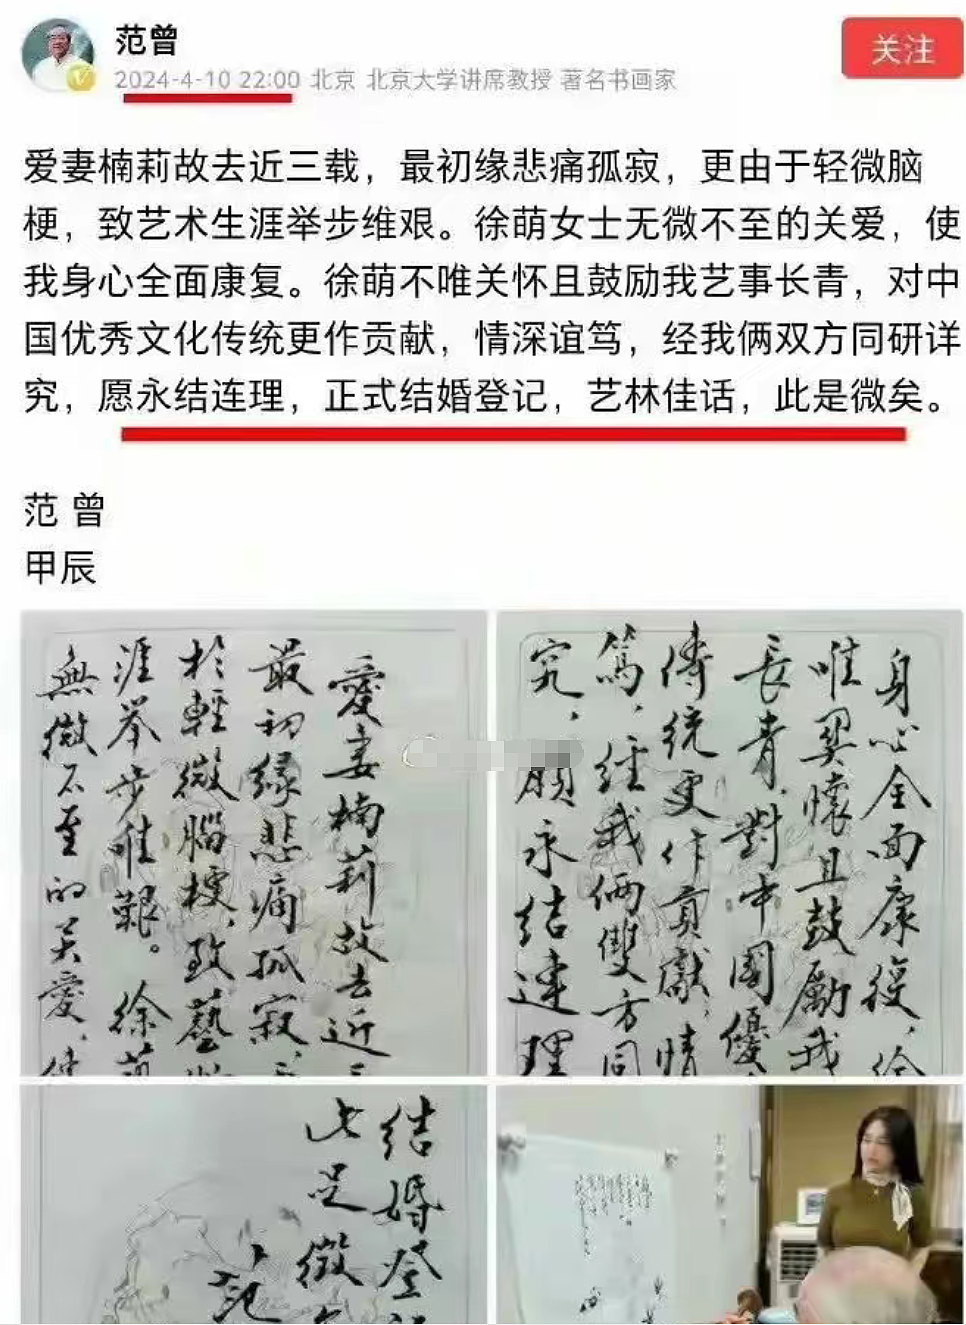 范曾
2024-4-10 22:00 北京 北京大学讲席教授 著名书画家
关注
爱妻楠莉故去近三载，最初缘悲痛孤寂，更由于轻微脑
梗，致艺术生涯举步维艰。徐萌女士无微不至的关爱，使
我身心全面康复。徐萌不唯关怀且鼓励我艺事长青，对中
国优秀文化传统更作贡献，情深谊笃，经我俩双方同研详
究，愿永结连理，正式结婚登记，艺林佳话，此是微矣。
范 曾
甲辰
愛妻楠莉故去近三
最初缘悲痛孤寂，
於輕微腦梗，致藝
涯举步维艱。徐萌
無微不至的关愛，使
身心全面康復，徐
唯関懷且鼓勵我
長青，對中國優
傳統更作貢獻，情
篤，經我俩雙方同
究，願永结連理
结婚登
此是微
范